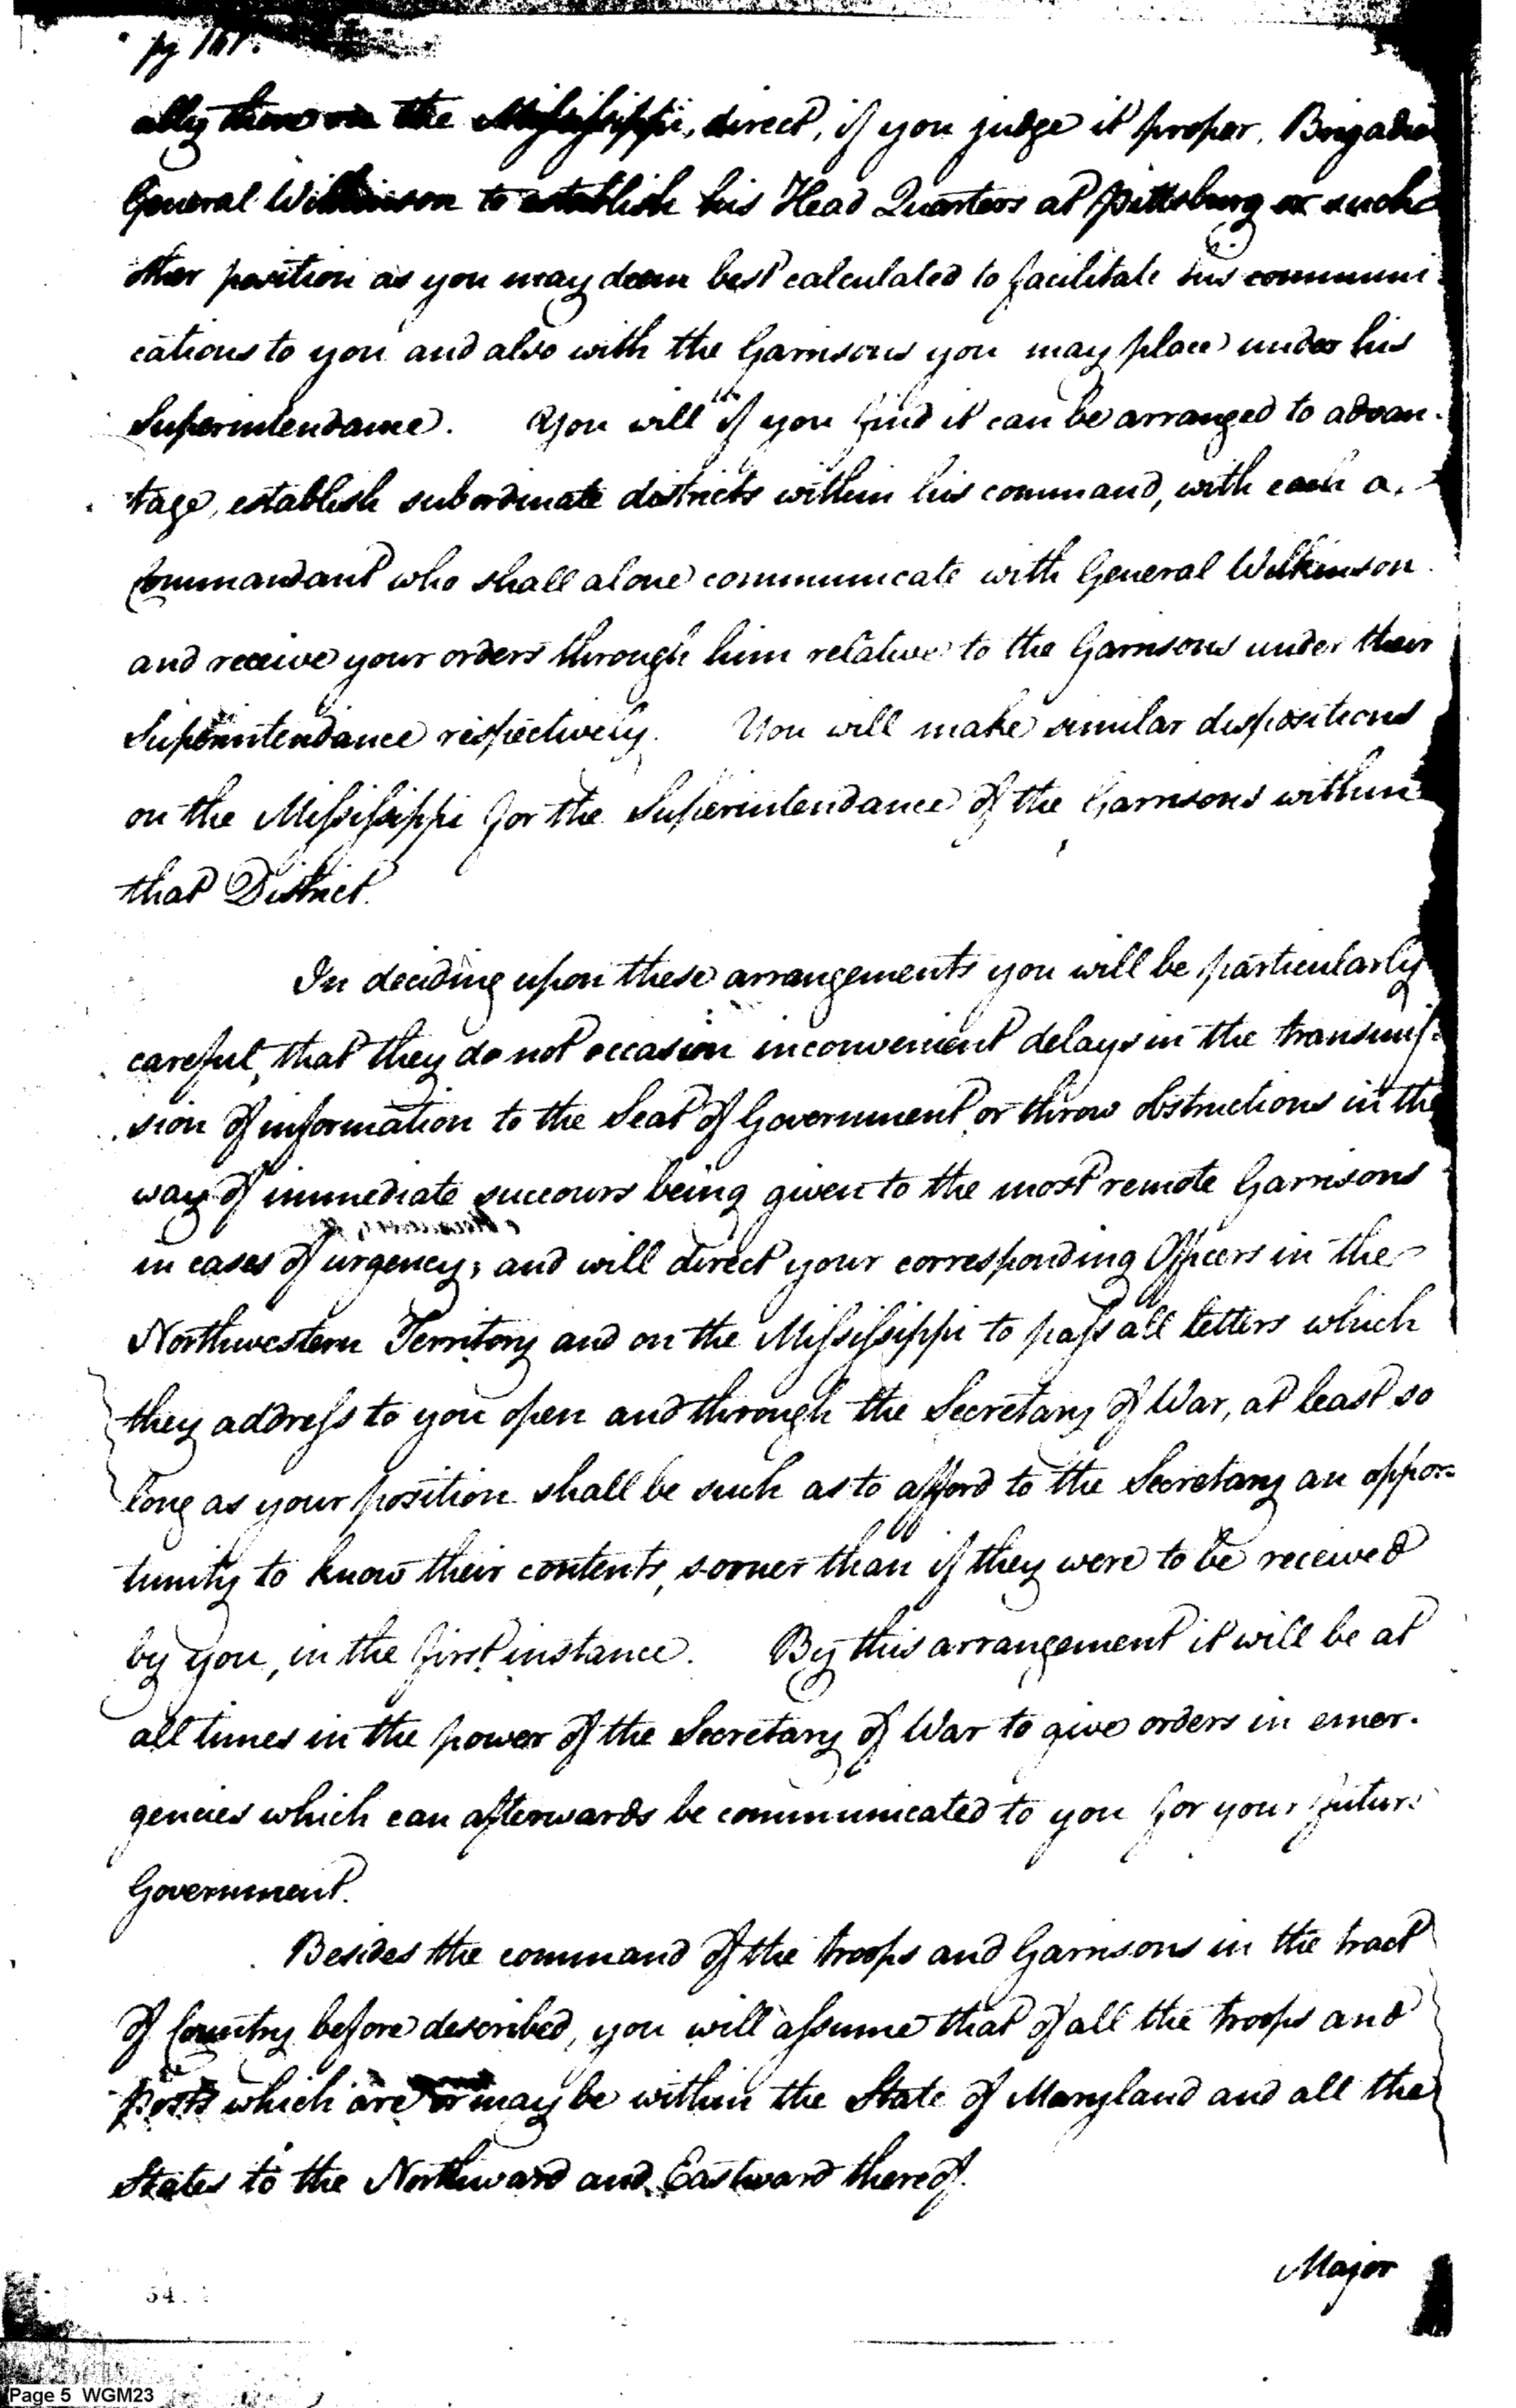 pg 161.
ally those on the Mississippi, direct, if you judge it proper, Brigadier
General Wilkinson to establish his Head Quarters at Pittsburg or such
other position as you may deem best calculated to facilitate his communi
cations to you and also with the Garrisons you may place under his
Superintendance. You will if you find it can be arranged to advan-
tage, establish subordinate districts within his command, with each a
Commandant who shall alone communicate with General Wilkinson
and receive your orders through him relative to the Garrisons under their
Superintendance respectively. You will make similar dispositions
on the Mississippi for the Superintendance of the Garrisons within
that District.
In deciding upon these arrangements you will be particularly
careful, that they do not occasion inconvenient delays in the transmis-
sion of information to the Seat of Government, or throw obstructions in the
way of immediate succours being given to the most remote Garrisons
in cases of urgency; and will direct your corresponding Officers in the
Northwestern Territory and on the Mississippi to pass all letters which
they address to you open and through the Secretary of War, at least so
long as your position shall be such as to afford to the Secretary an oppor=
tunity to know their contents, sooner than if they were to be received
by you, in the first instance. By this arrangement it will be at
all times in the power of the Secretary of War to give orders in emer-
gencies which can afterwards be communicated to you for your future
Government.
Besides the command of the troops and Garrisons in the tract
of Country before described, you will assume that of all the troops and
Posts which are or may be within the State of Maryland and all the
States to the Northward and Eastward thereof.
Major
54.
Page 5 WGM23